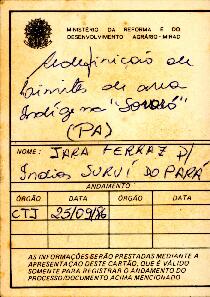 MINISTÉRIO DA REFORMA E DO
DESENVOLVIMENTO AGRÁRIO - MIRAD
Redefinição de
limites de área
Indígena "Sororó"
(PA)
NOME: IARA FERRAZ p/
Índios SURUÍ DO PARÁ
ANDAMENTO
ÓRGÃO DATA ÓRGÃO DATA
CTI 25/09/86
AS INFORMAÇÕES SERÃO PRESTADAS MEDIANTE A
APRESENTAÇÃO DESTE CARTÃO, QUE É VÁLIDO
SOMENTE PARA REGISTRAR O ANDAMENTO DO
PROCESSO/DOCUMENTO ACIMA MENCIONADO